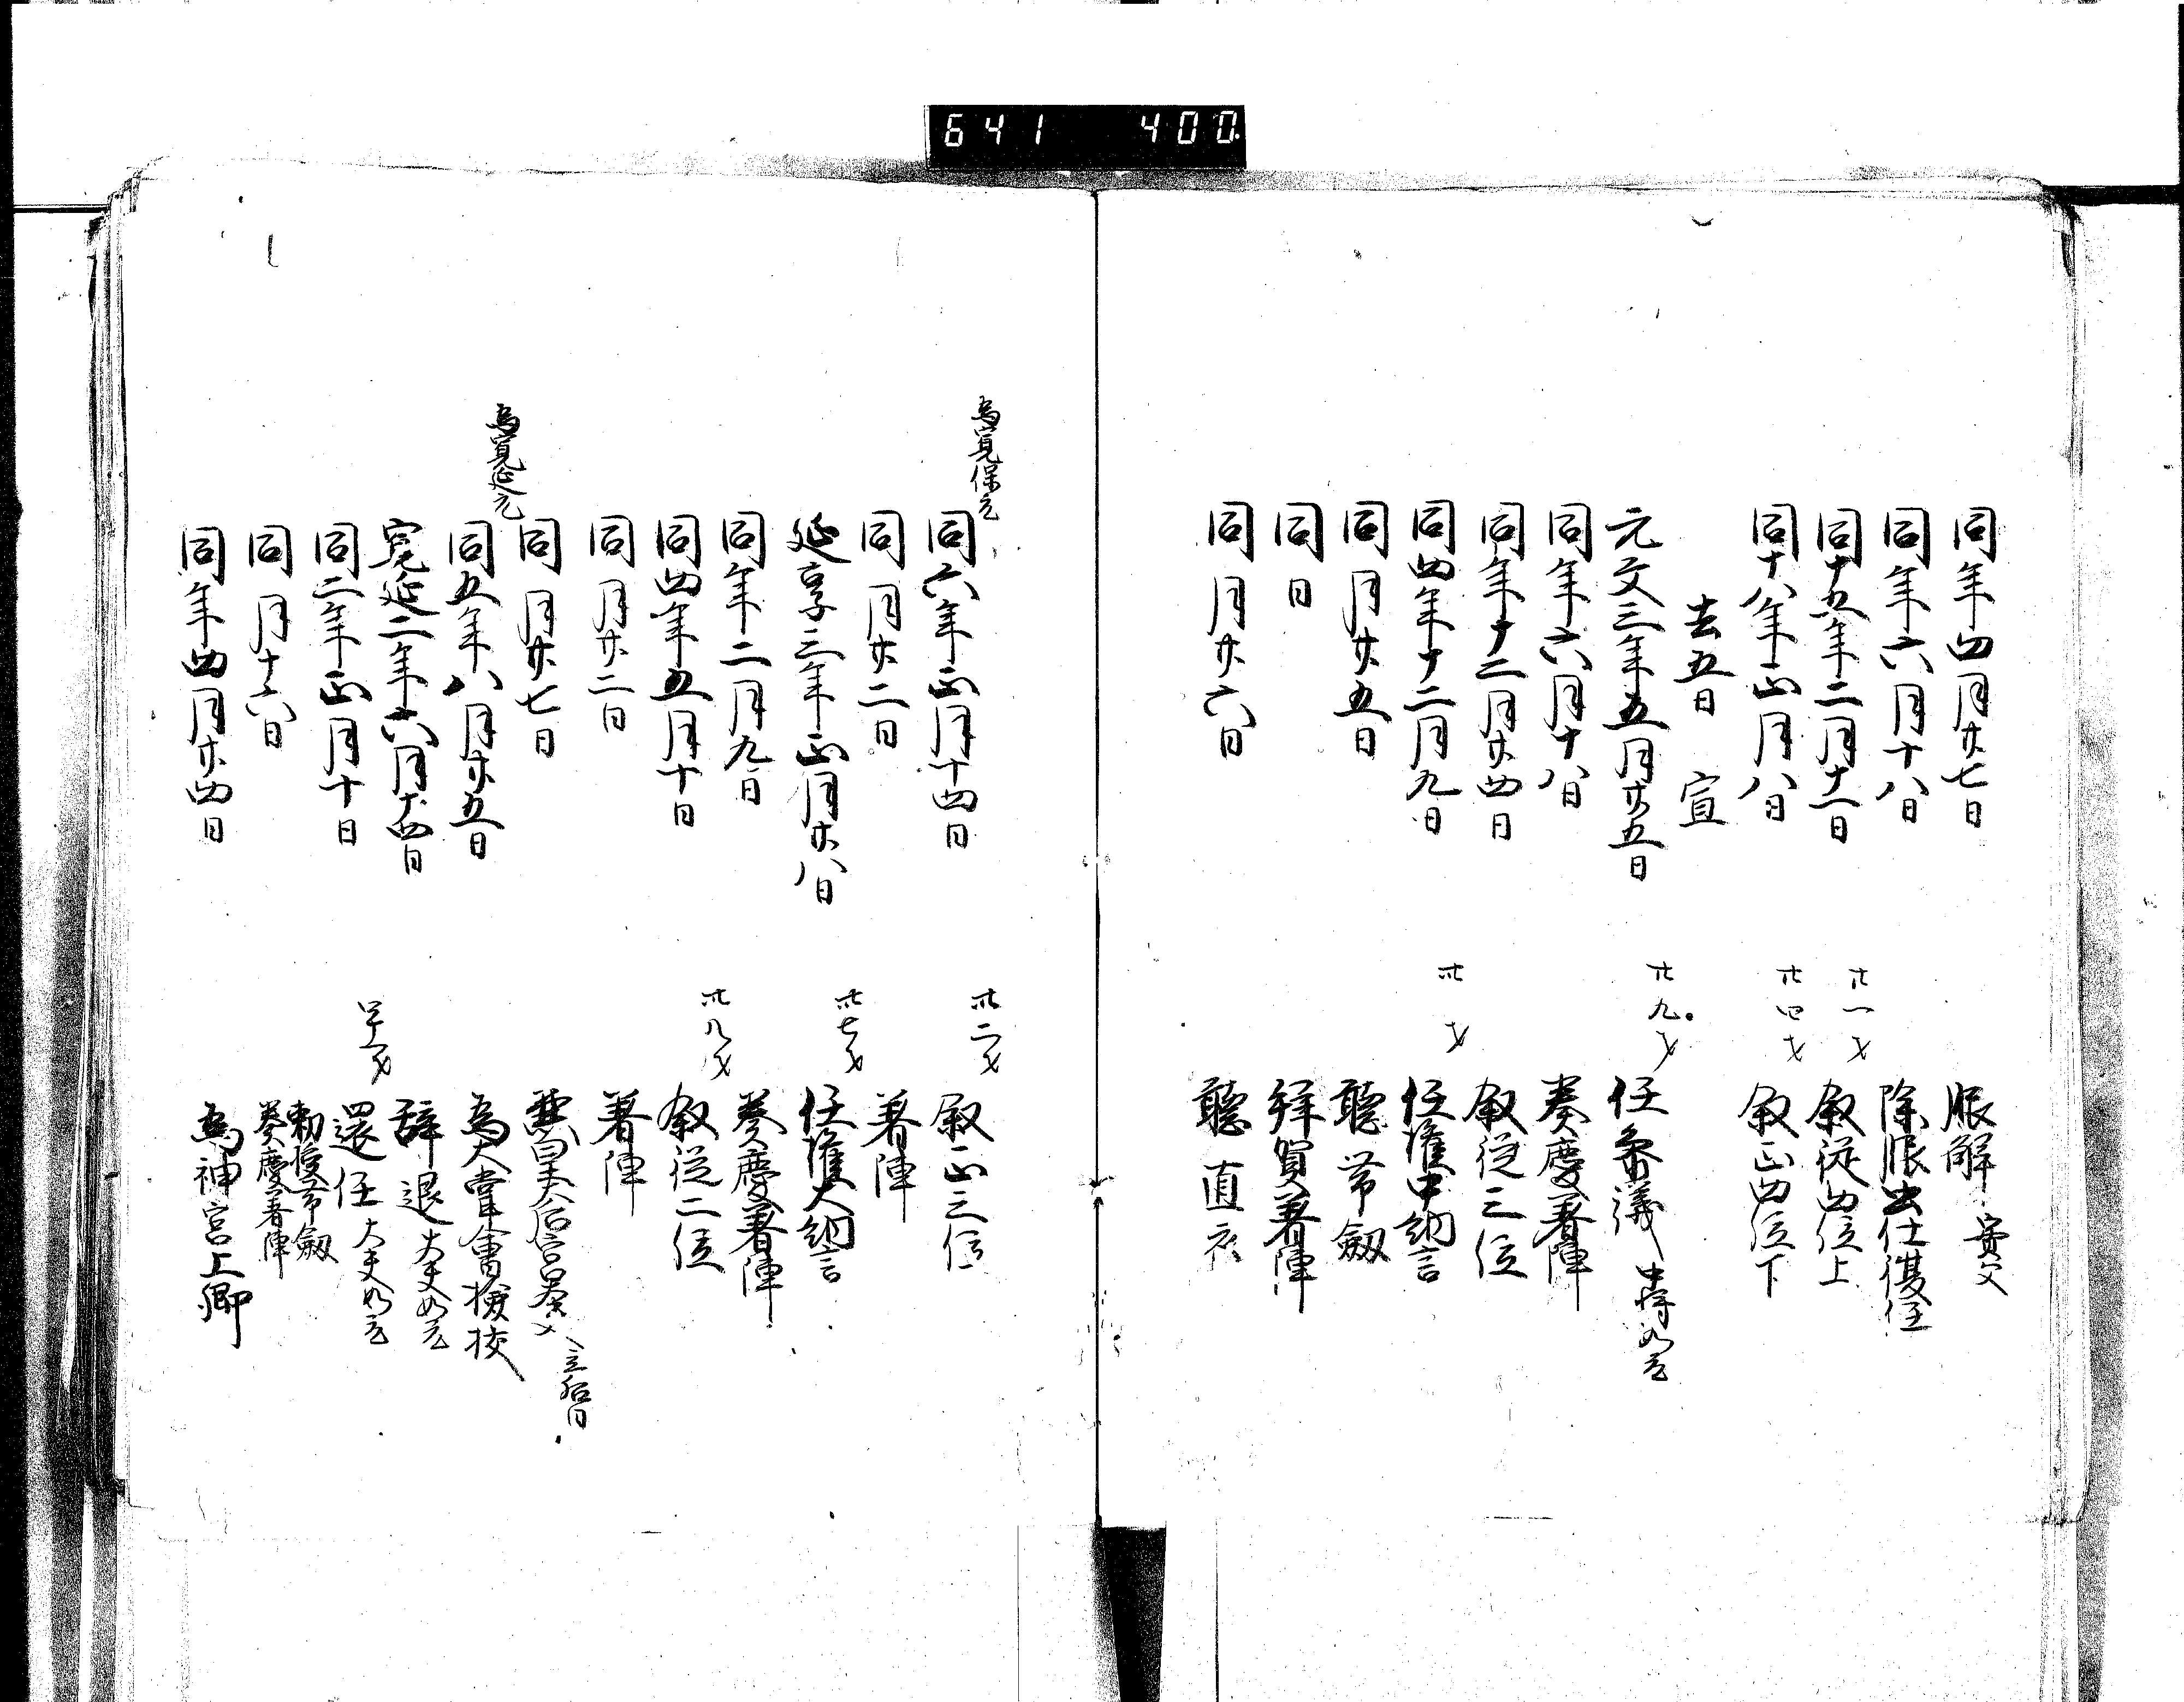 641 400
同年四月廿七日 服解 実父
同年六月十八日 除服出仕復任
同十五年二月十一日 廿一才 叙従四位上
同十八年正月八日 廿四才 叙正四位下
去五日 宣
元文三年五月廿五日 廿九才 任参議 中将如元
同年六月十八日 奏慶著陣
同年十二月廿四日 叙従三位
同四年十二月九日 卅才 任権中納言
同月廿五日 聴帯剱
同日 拝賀著陣
同月廿六日 聴直衣
為寛保元
同六年正月十四日 卅二才 叙正三位
同月廿二日 著陣
延享三年正月廿八日 卅七才 任権大納言
同年二月九日 奏慶著陣
同四年五月十日 卅八才 叙従二位
同月廿二日 著陣
同月廿七日 兼皇太后宮大夫 立后日
為寛延元
同五年八月廿五日 為大嘗會検校
寛延二年六月十四日 辞退 大夫如元
同二年正月十日 還任 大夫如元
同月十六日 勅授帯剱
奏慶著陣
同年四月廿四日 為神宮上卿